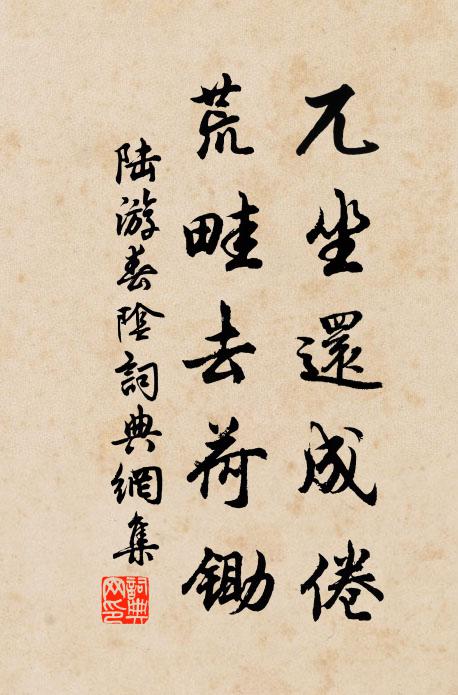 兀坐還成倦
荒畦去荷鋤
陸游春陰詞典網集
詞典
网印